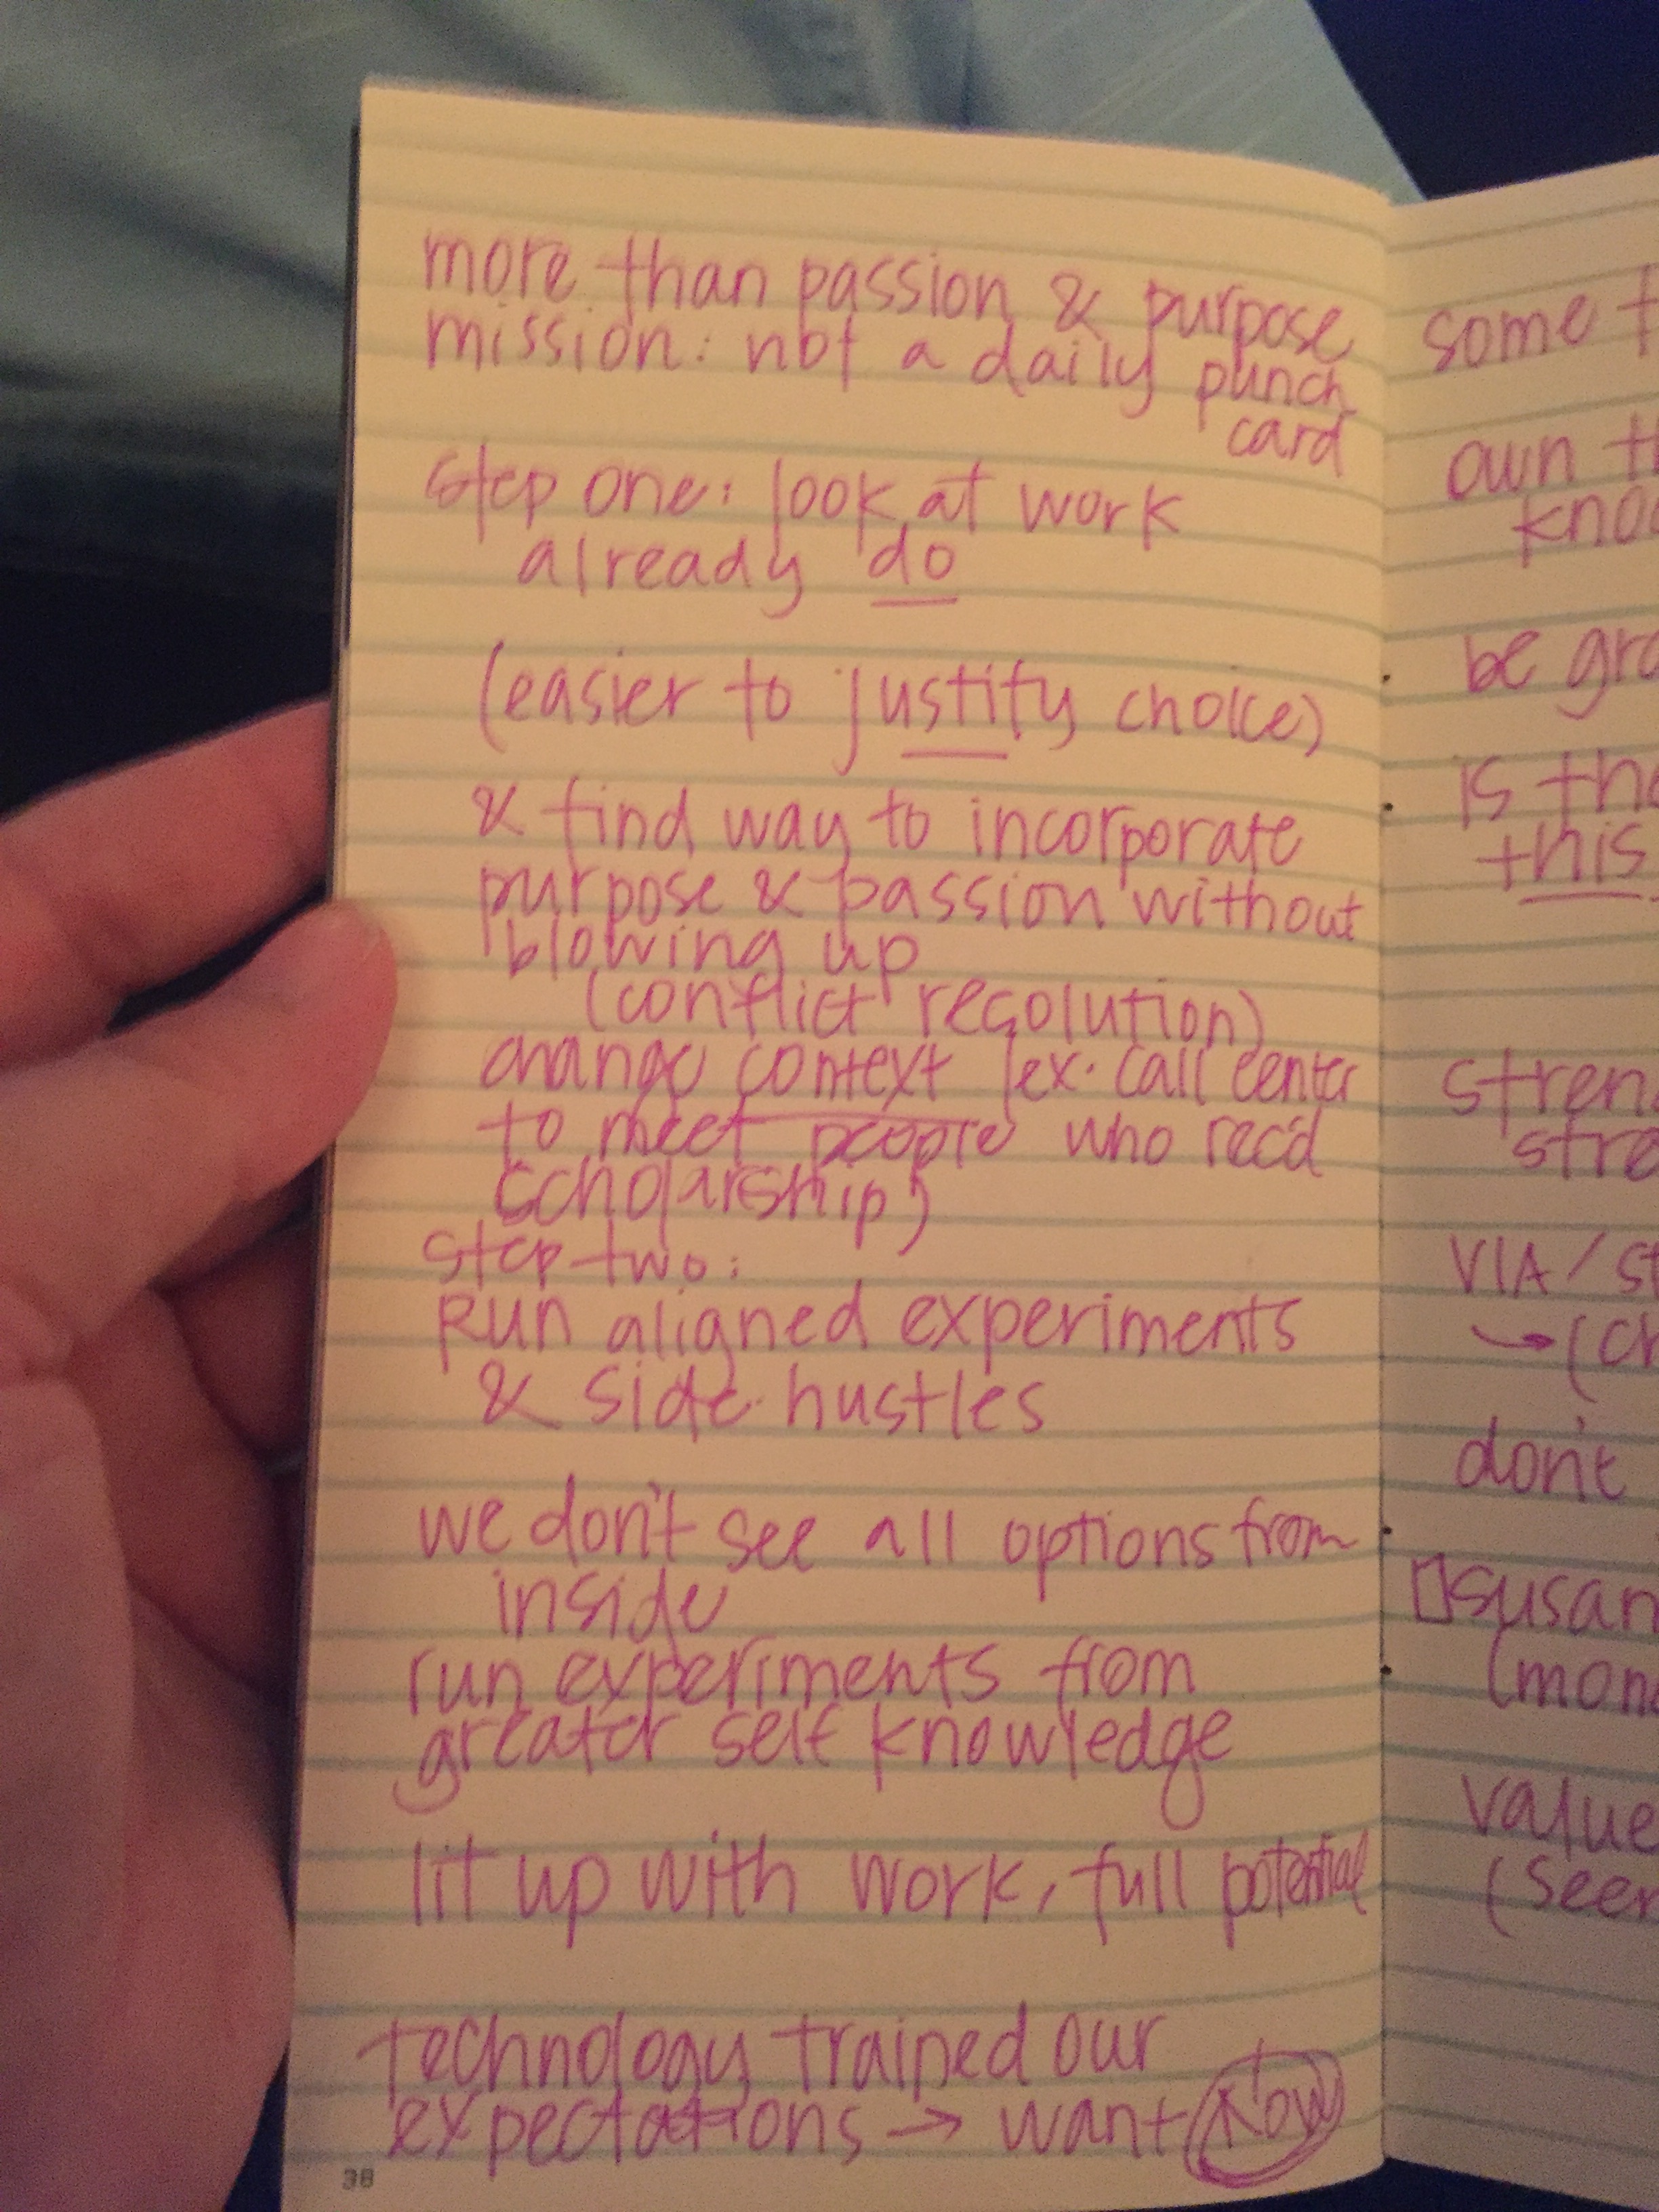 more than passion & purpose
mission: not a daily punch
card
step one: look at work
already do
(easier to justify choice)
& find way to incorporate
purpose & passion without
blowing up
(conflict resolution)
change context (ex. call center
to meet people who rec'd
scholarship)
step two:
Run aligned experiments
& side hustles
we don't see all options from
inside
run experiments from
greater self knowledge
lit up with work, full potential
technology trained our
expectations → want Now
38
some
own
be
is
this
VIA/
don't
susan
value